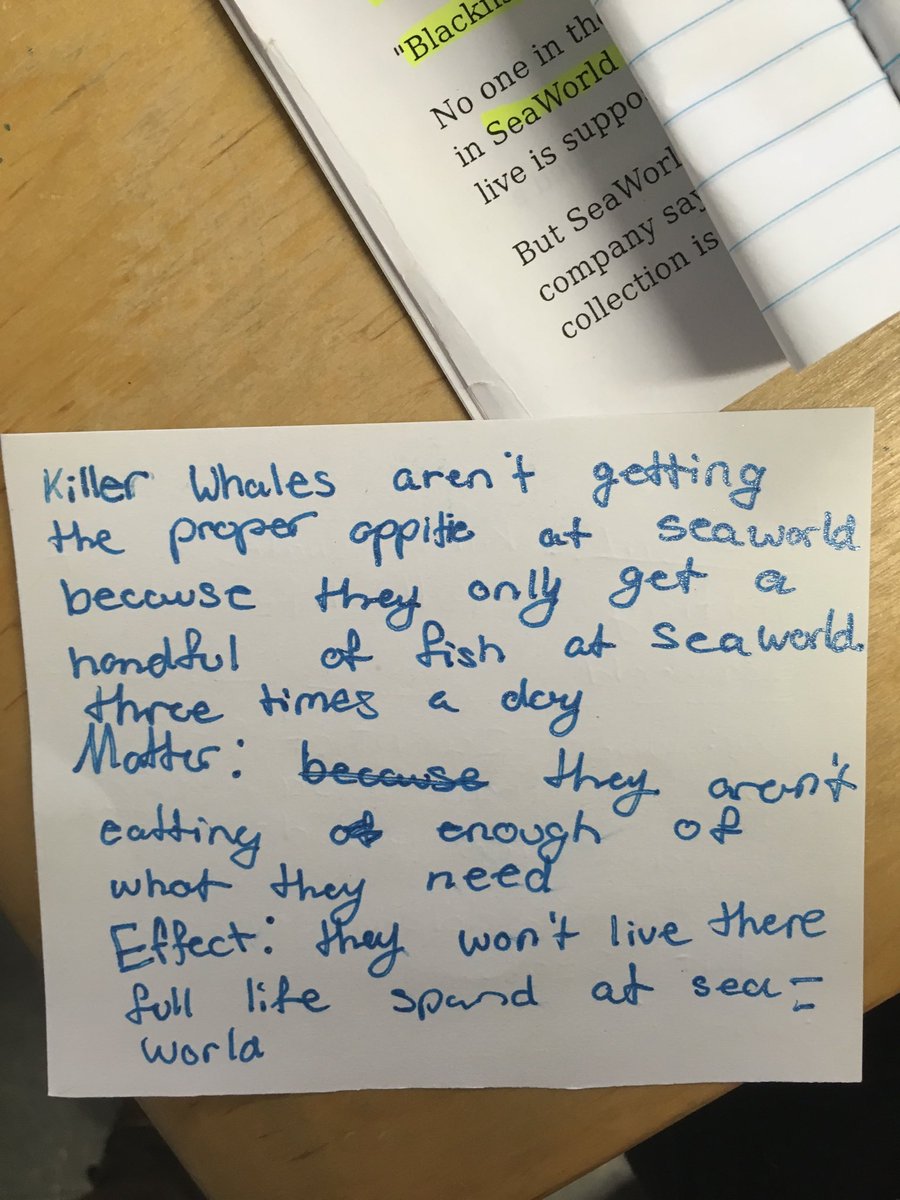 "Blackfis
No one in the
in SeaWorld
live is suppo
But SeaWorl
company say
collection is
Killer Whales aren't getting
the proper appitie at seaworld
because they only get a
handful of fish at seaworld.
three times a day
Matter: because they aren't
eatting of enough of
what they need
Effect: they won't live there
full life spand at sea=
world